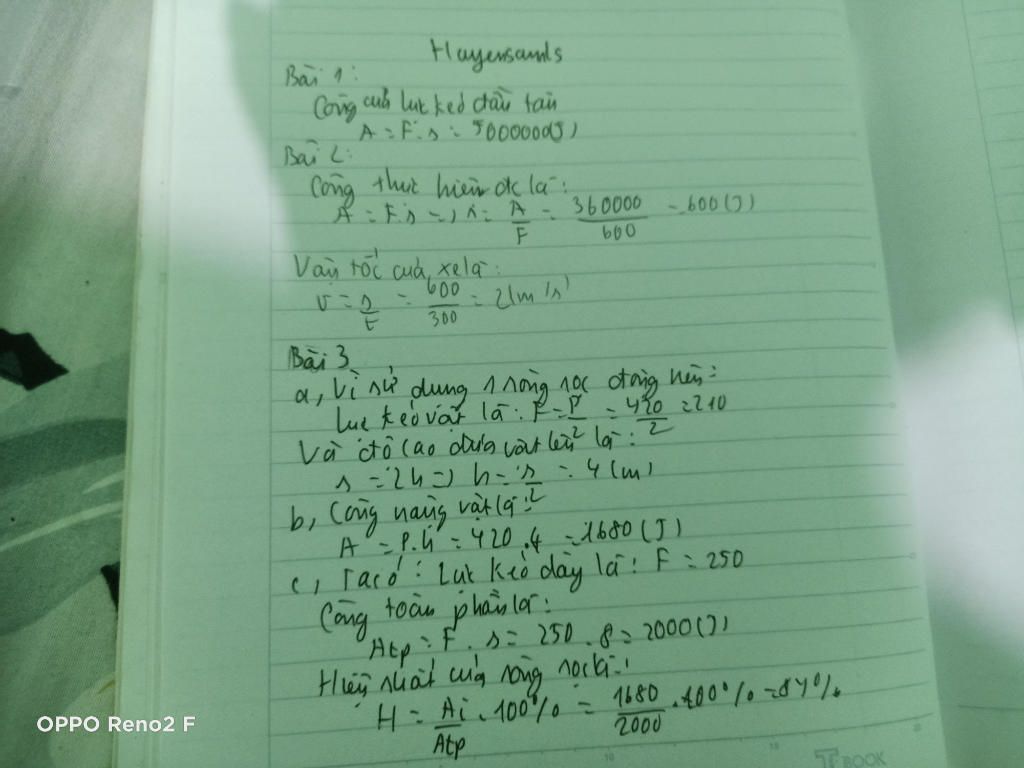 Hayensamls
Bài 1:
Công của lực kéo đầu tàu
A = F.s = 5000000(J)
Bài 2:
Công thực hiện đc là:
A = F.s => s = A/F = 360000/600 = 600(J)
Vận tốc của xe là:
v = s/t = 600/300 = 2(m/s)
Bài 3
a, Vì sử dụng 1 ròng rọc động nên:
Lực kéo vật là: F = P/2 = 420/2 = 210
Và độ cao đưa vật lên là:
s = 2h => h = s/2 = 4(m)
b, Công nâng vật là:
A = P.h = 420.4 = 1680(J)
c, Ta có: Lực kéo dây là: F = 250
Công toàn phần là:
Atp = F.s = 250.8 = 2000(J)
Hiệu suất của ròng rọc là:
H = Ai/Atp.100% = 1680/2000.100% = 84%
OPPO Reno2 F
T BOOK